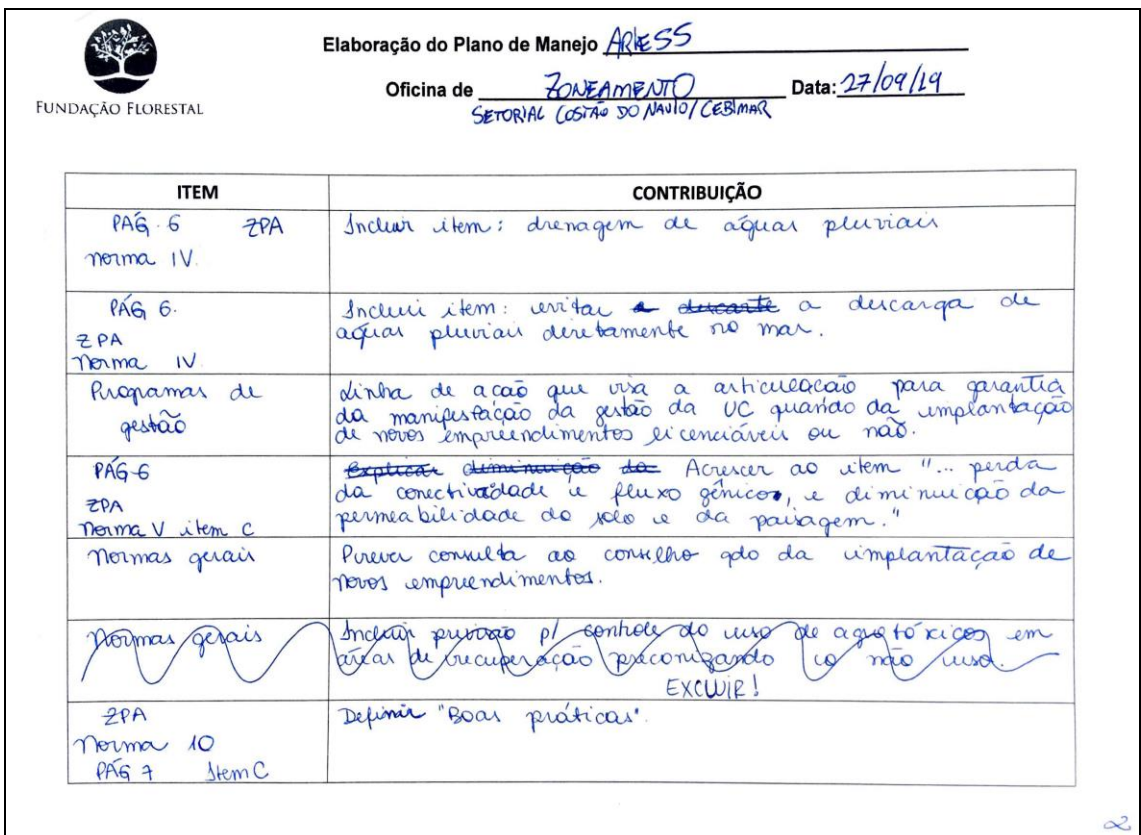 Elaboração do Plano de Manejo ARIESS
Oficina de ZONEAMENTO Data: 27/09/19
SETORIAL COSTÃO DO NAVIO/CEBIMAR
FUNDAÇÃO FLORESTAL
ITEM CONTRIBUIÇÃO
PÁG. 6 ZPA
norma IV.
Incluir item: drenagem de águas pluviais
PÁG 6.
ZPA
Norma IV
Incluir item: evitar a descarte a descarga de
águas pluviais diretamente no mar.
Programas de
gestão
Linha de ação que visa a articulação para garantia
da manifestação da gestão da UC quando da implantação
de novos empreendimentos licenciáveis ou não.
PÁG-6
ZPA
Norma V item C
Explicar diminuição da Acrescer ao item "... perda
da conectividade e fluxo gênico, e diminuição da
permeabilidade do solo e da paisagem."
Normas gerais
Prever consulta ao conselho qdo da implantação de
novos empreendimentos.
Normas gerais
Incluir previsão p/ controle do uso de agrotóxicos em
áreas de recuperação preconizando o não uso.
EXCLUIR!
ZPA
Norma 10
PÁG 7 Item C
Definir "Boas práticas".
2